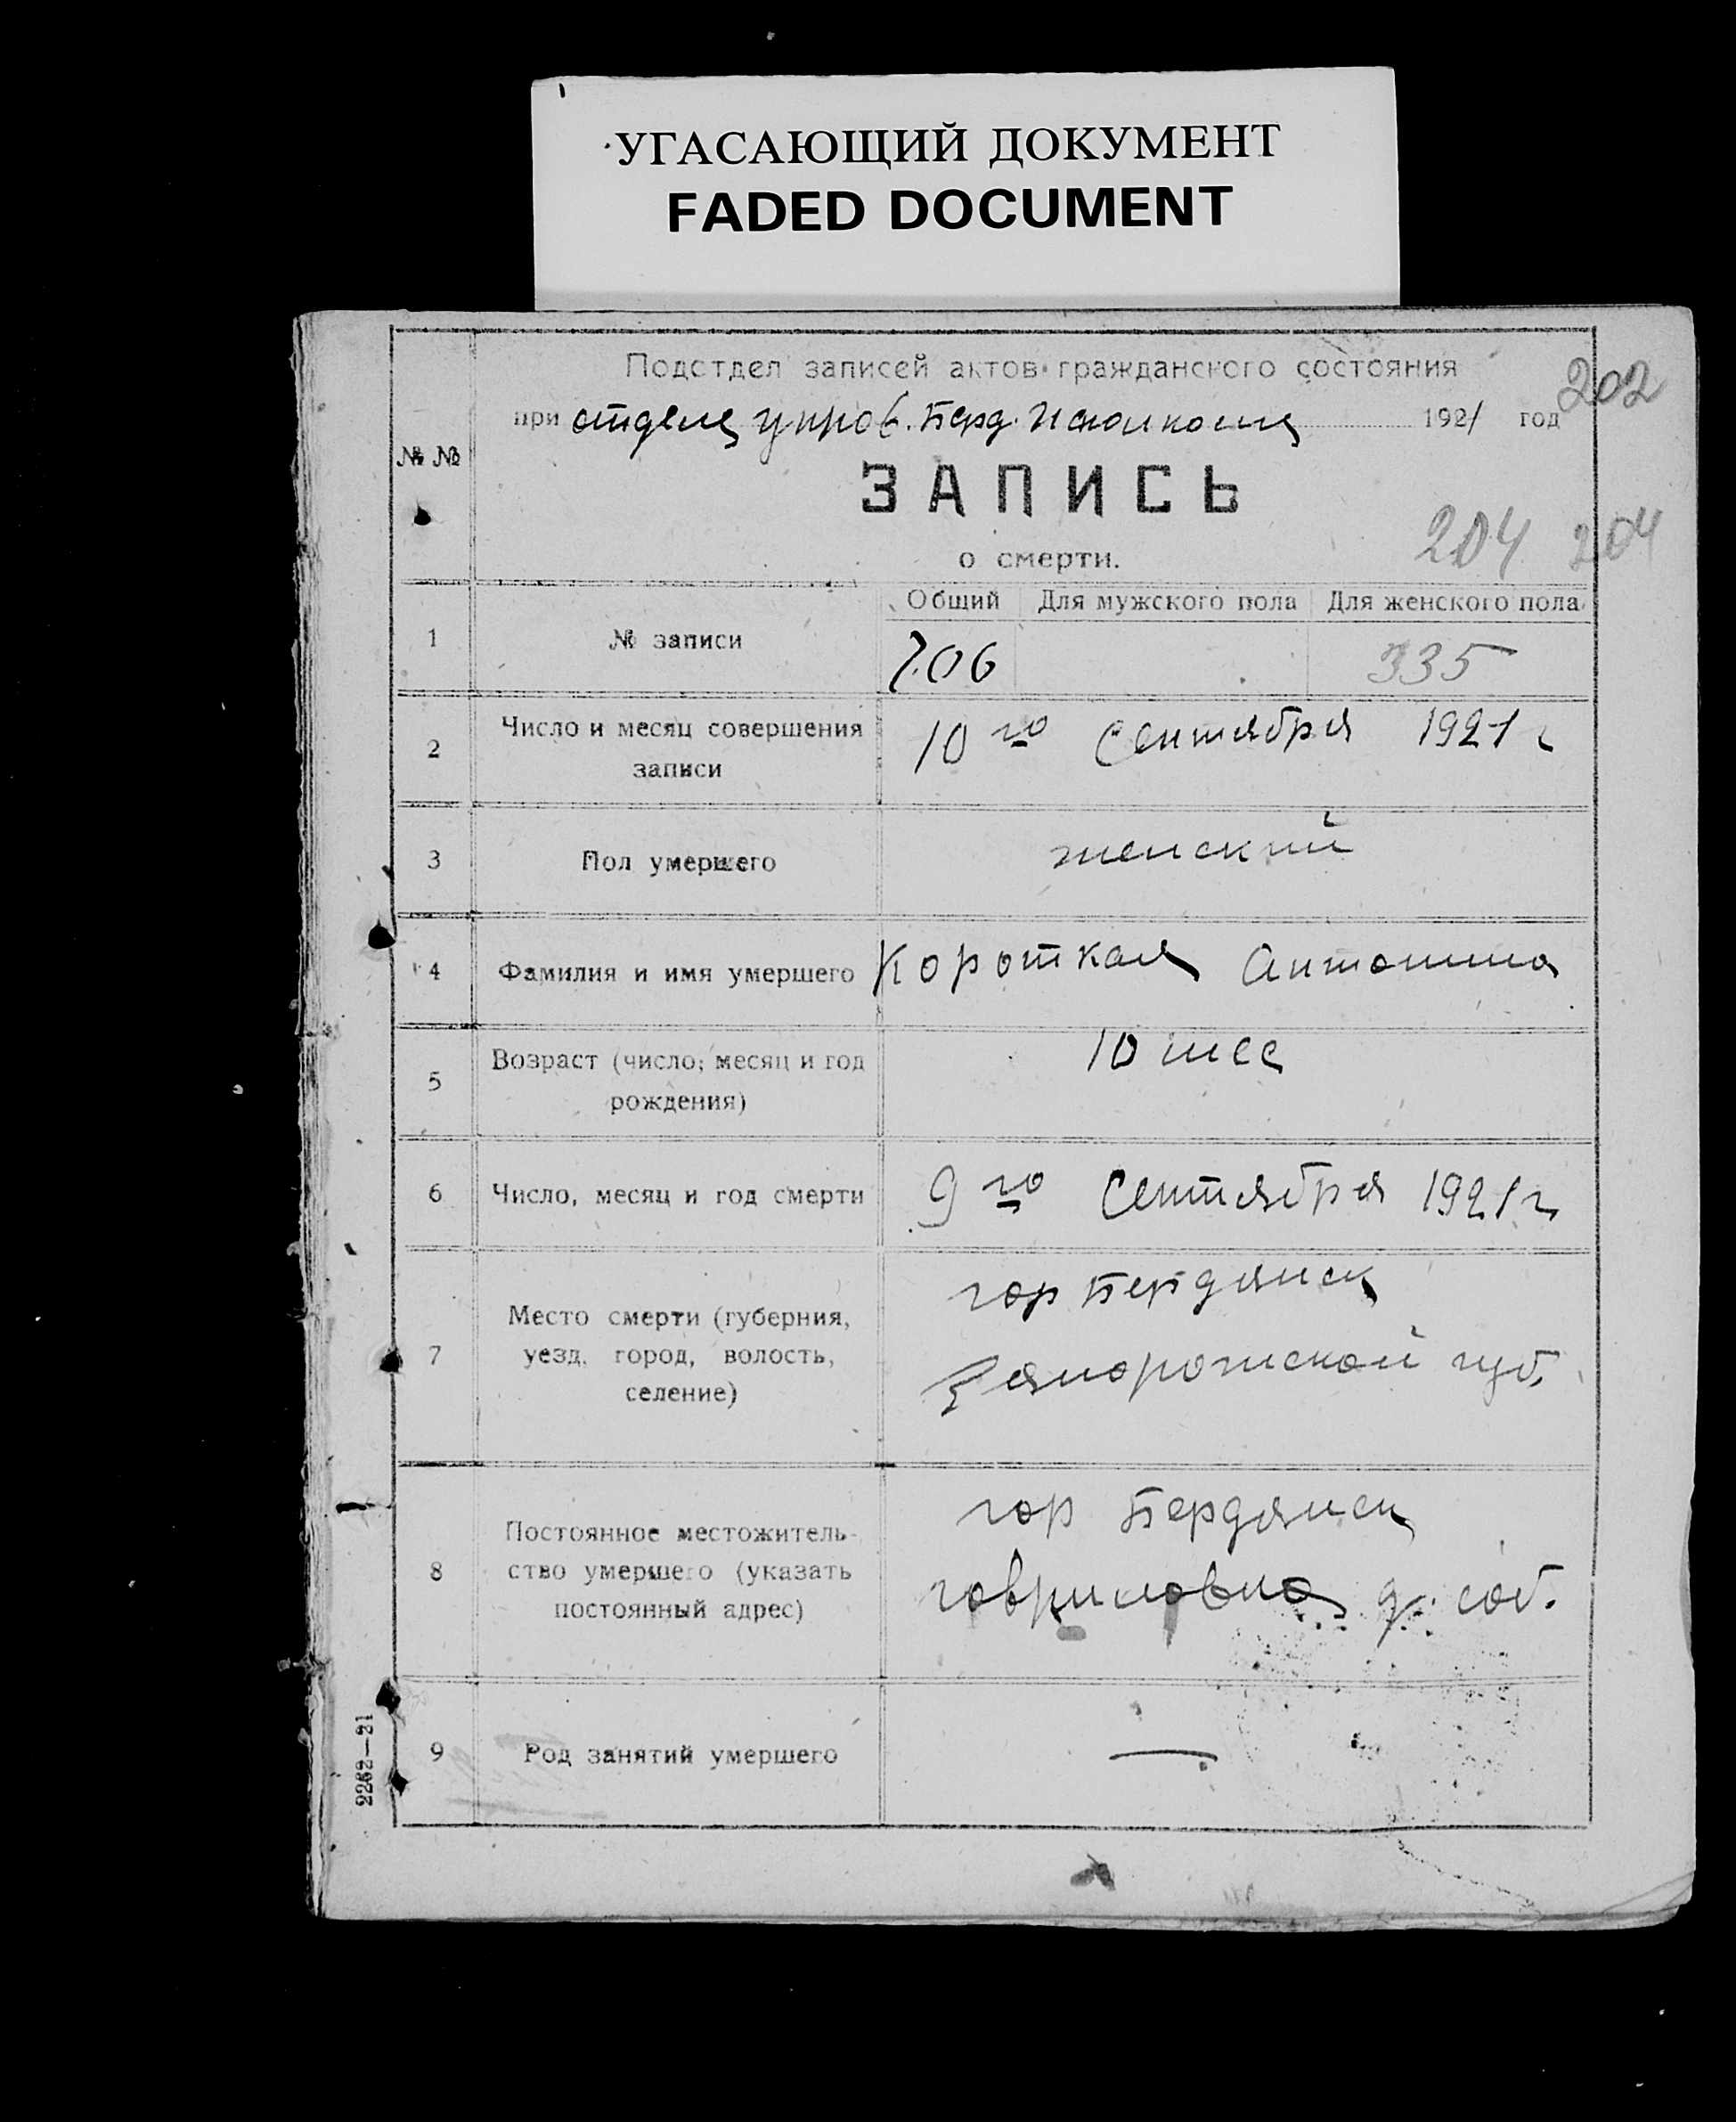 УГАСАЮЩИЙ ДОКУМЕНТ
FADED DOCUMENT
Подотдел записей актов гражданского состояния
202
при отделе управ. Берд. Исполкома 1921 год
№ №
ЗАПИСЬ
о смерти.
204 204
Общий Для мужского пола Для женского пола
1 № записи 706 335
2 Число и месяц совершения
записи
10 го Сентября 1921 г
3 Пол умершего женский
4 Фамилия и имя умершего Короткая Антонина
5 Возраст (число, месяц и год
рождения)
10 мес
6 Число, месяц и год смерти 9 го Сентября 1921 г
7 Место смерти (губерния,
уезд, город, волость,
селение)
гор Бердянск
Запорожской губ.
8 Постоянное местожитель-
ство умершего (указать
постоянный адрес)
гор Бердянск
д. соб.
9 Род занятий умершего —
2262—21